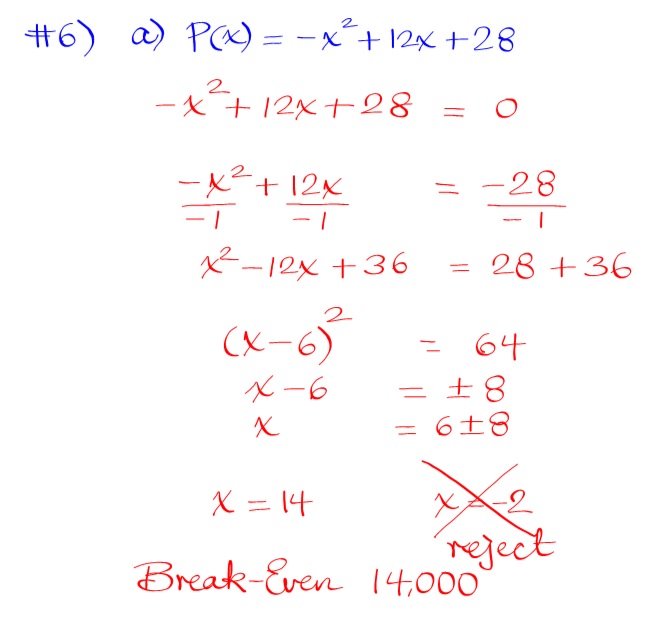 #6) a) P(x) = -x² + 12x + 28
-x² + 12x + 28 = 0
-x² + 12x = -28
-1 -1 -1
x² - 12x + 36 = 28 + 36
(x - 6)² = 64
x - 6 = ± 8
x = 6 ± 8
x = 14 x = -2
reject
Break-Even 14,000